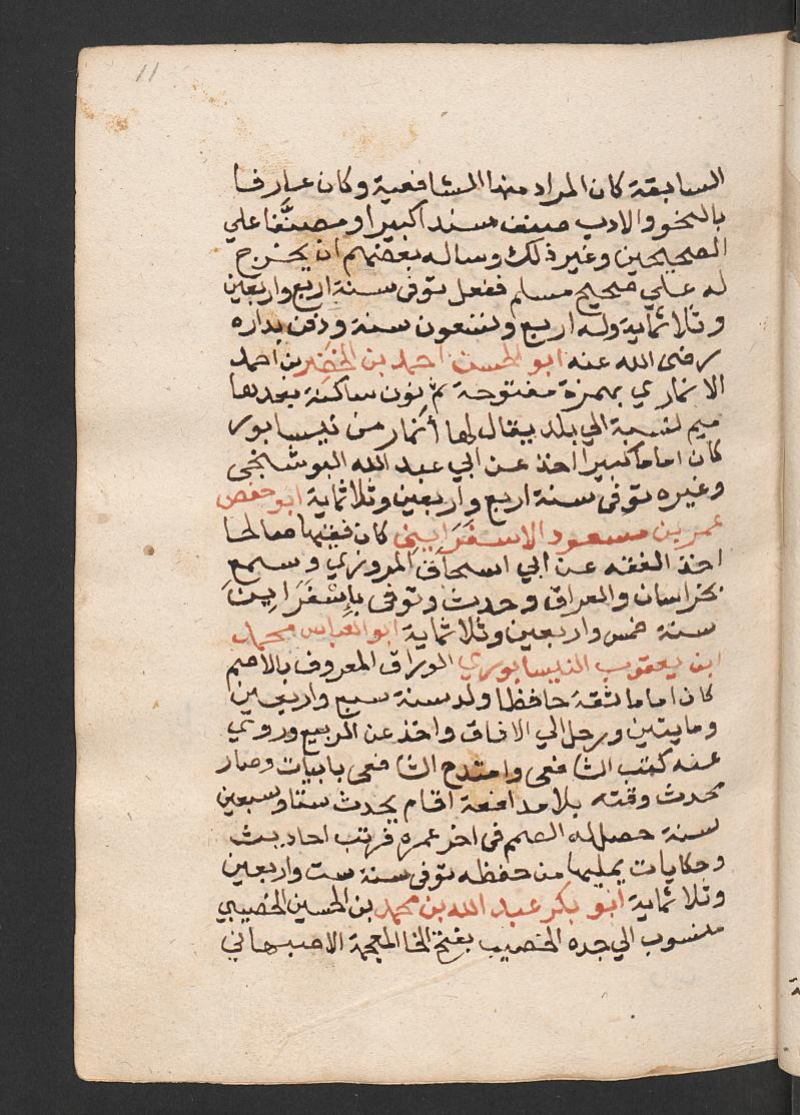 11
السابقة كان المراد منها الشافعية وكان عارفا
بالنحو والادب صنف مسندا كبيرا ومصنَّفا علي
الصحيحين وغير ذلك وساله بعضهم ان يخرج
له علي صحيح مسلم ففعل توفى سنة اربع واربعين
وثلاثماية وله اربع وتسعون سنة ودفن بداره
رضى الله عنه ابو الحسن احمد بن الخضر بن احمد
الانماري بهمزة مفتوحة ثم نون ساكنة بعدها
ميم نسبة الي بلد يقال لها أنمار من نيسابور
كان اماما كبيرا اخذ عن ابي عبد الله البوشنجى
وغيره توفى سنة اربع واربعين وثلاثماية ابو حفص
عمر بن مسعود الاسفَرَايينى كان فقيها صالحا
اخذ الفقه عن ابي اسحاق المروزي وسمع
بخراسان والعراق وحدث وتوفى بإسْفَرَايين
سنة خمس واربعين وثلاثماية ابو العباس محمد
ابن يعقوب النيسابوري الوراق المعروف بالاصم
كان اماما ثقة حافظا ولد سنة سبع واربعين
ومايتين ورحل الي الافاق واخذ عن الربيع وروي
عنه كتب الشافعى وامتدح الشافعى بابيات وصار
محدث وقته بلا مدافعة اقام يحدث ستا وسبعين
سنة حصل له الصمم فى اخر عمره فرتب احاديث
وحكايات يمليها من حفظه توفى سنة ست واربعين
وثلاثماية ابو بكر عبد الله بن محمد بن الحسين الخصيبي
منسوب الي جده الخصيب بفتح الخا المعجمة الاصبهاني